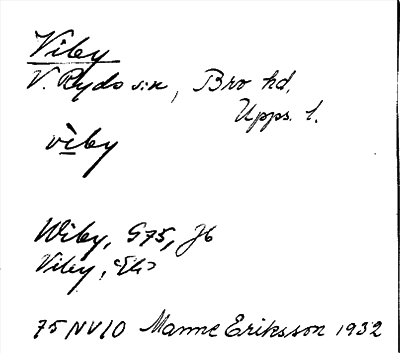 Viby
V. Rydo s:n, Bro hd.
Upps. l.
vìby
Wiby, G75, Jb
Viby, Ek
75 NV10 Manne Eriksson 1932